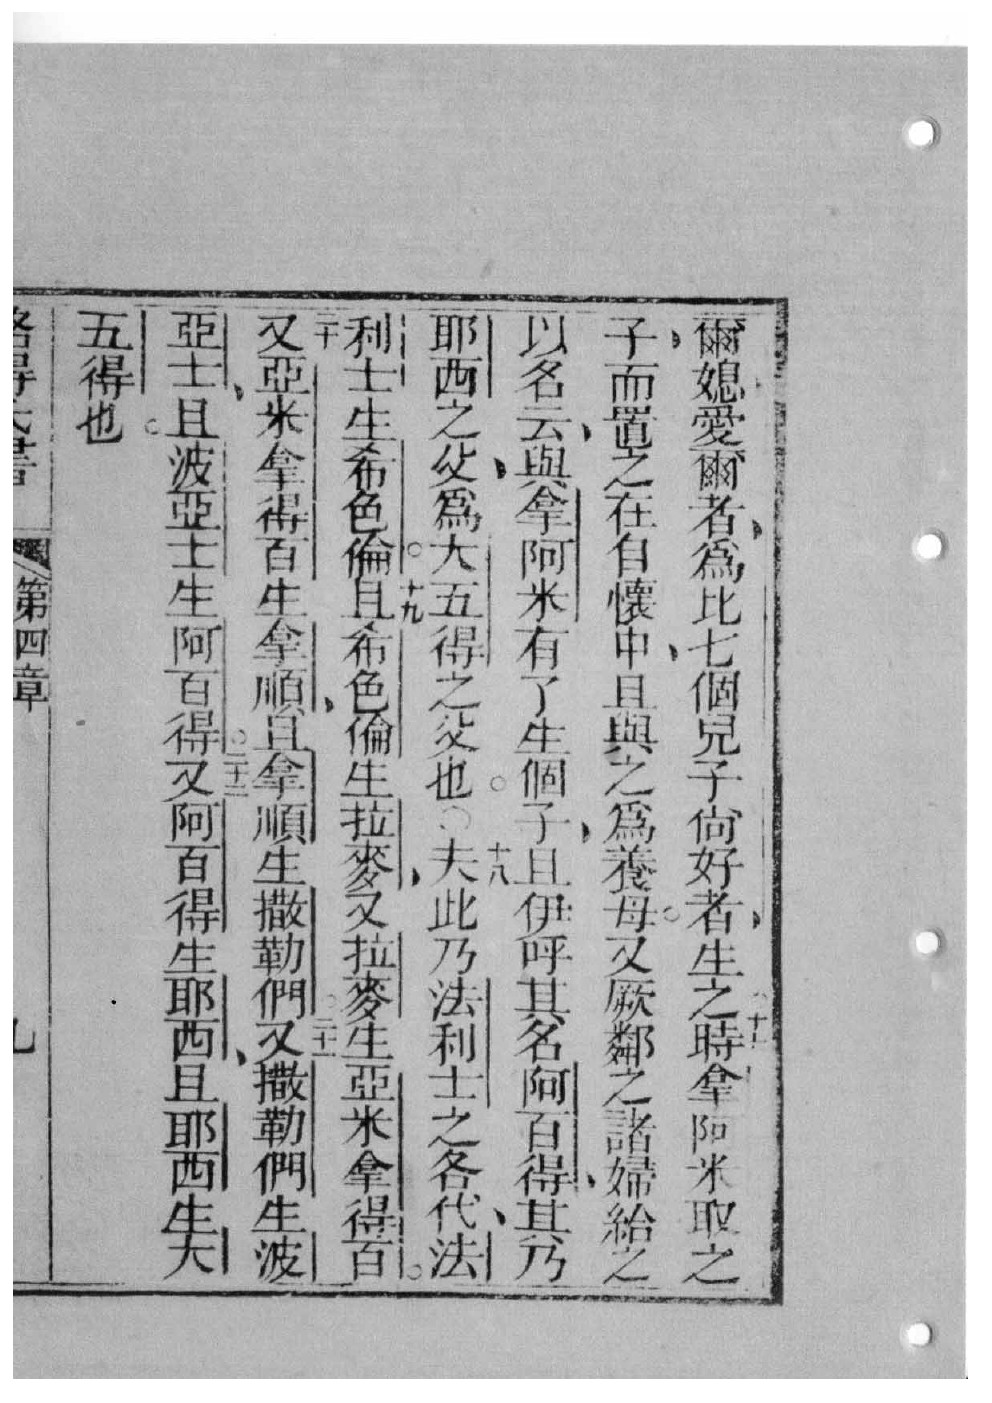 爾媳愛爾者、爲比七個兒子尙好者、生之○十六時拿阿米取之
子、而置之在自懷中、且與之爲養母○又厥鄰之諸婦給之
以名云、與拿阿米有了生個子、且伊呼其名阿百得、其乃
耶西之父、爲大五得之父也○○十八夫此乃法利士之各代、法
利士生希色倫○十九且希色倫生拉麥、又拉麥生亞米拿得百○
二十又亞米拿得百生拿順、且拿順生撒勒們○二十一又撒勒們生波
亞士、且波亞士生阿百得○二十二又阿百得生耶西、且耶西生大
五得也○
路得氏書 第四章 九